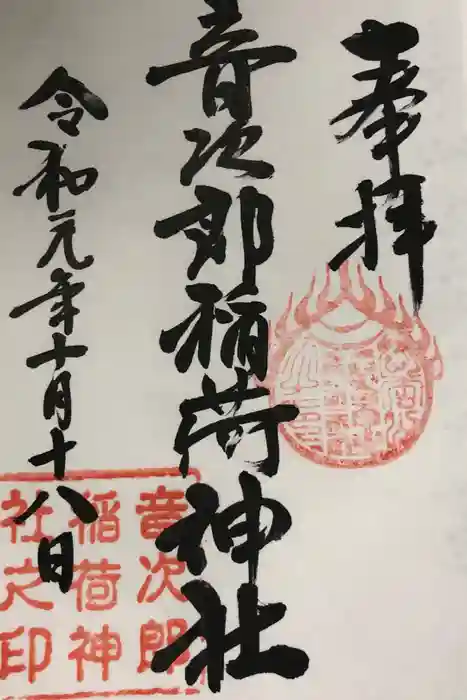 奉拝
音次郎稲荷神社
令和元年十月十八日
音次郎
稲荷神
社之印